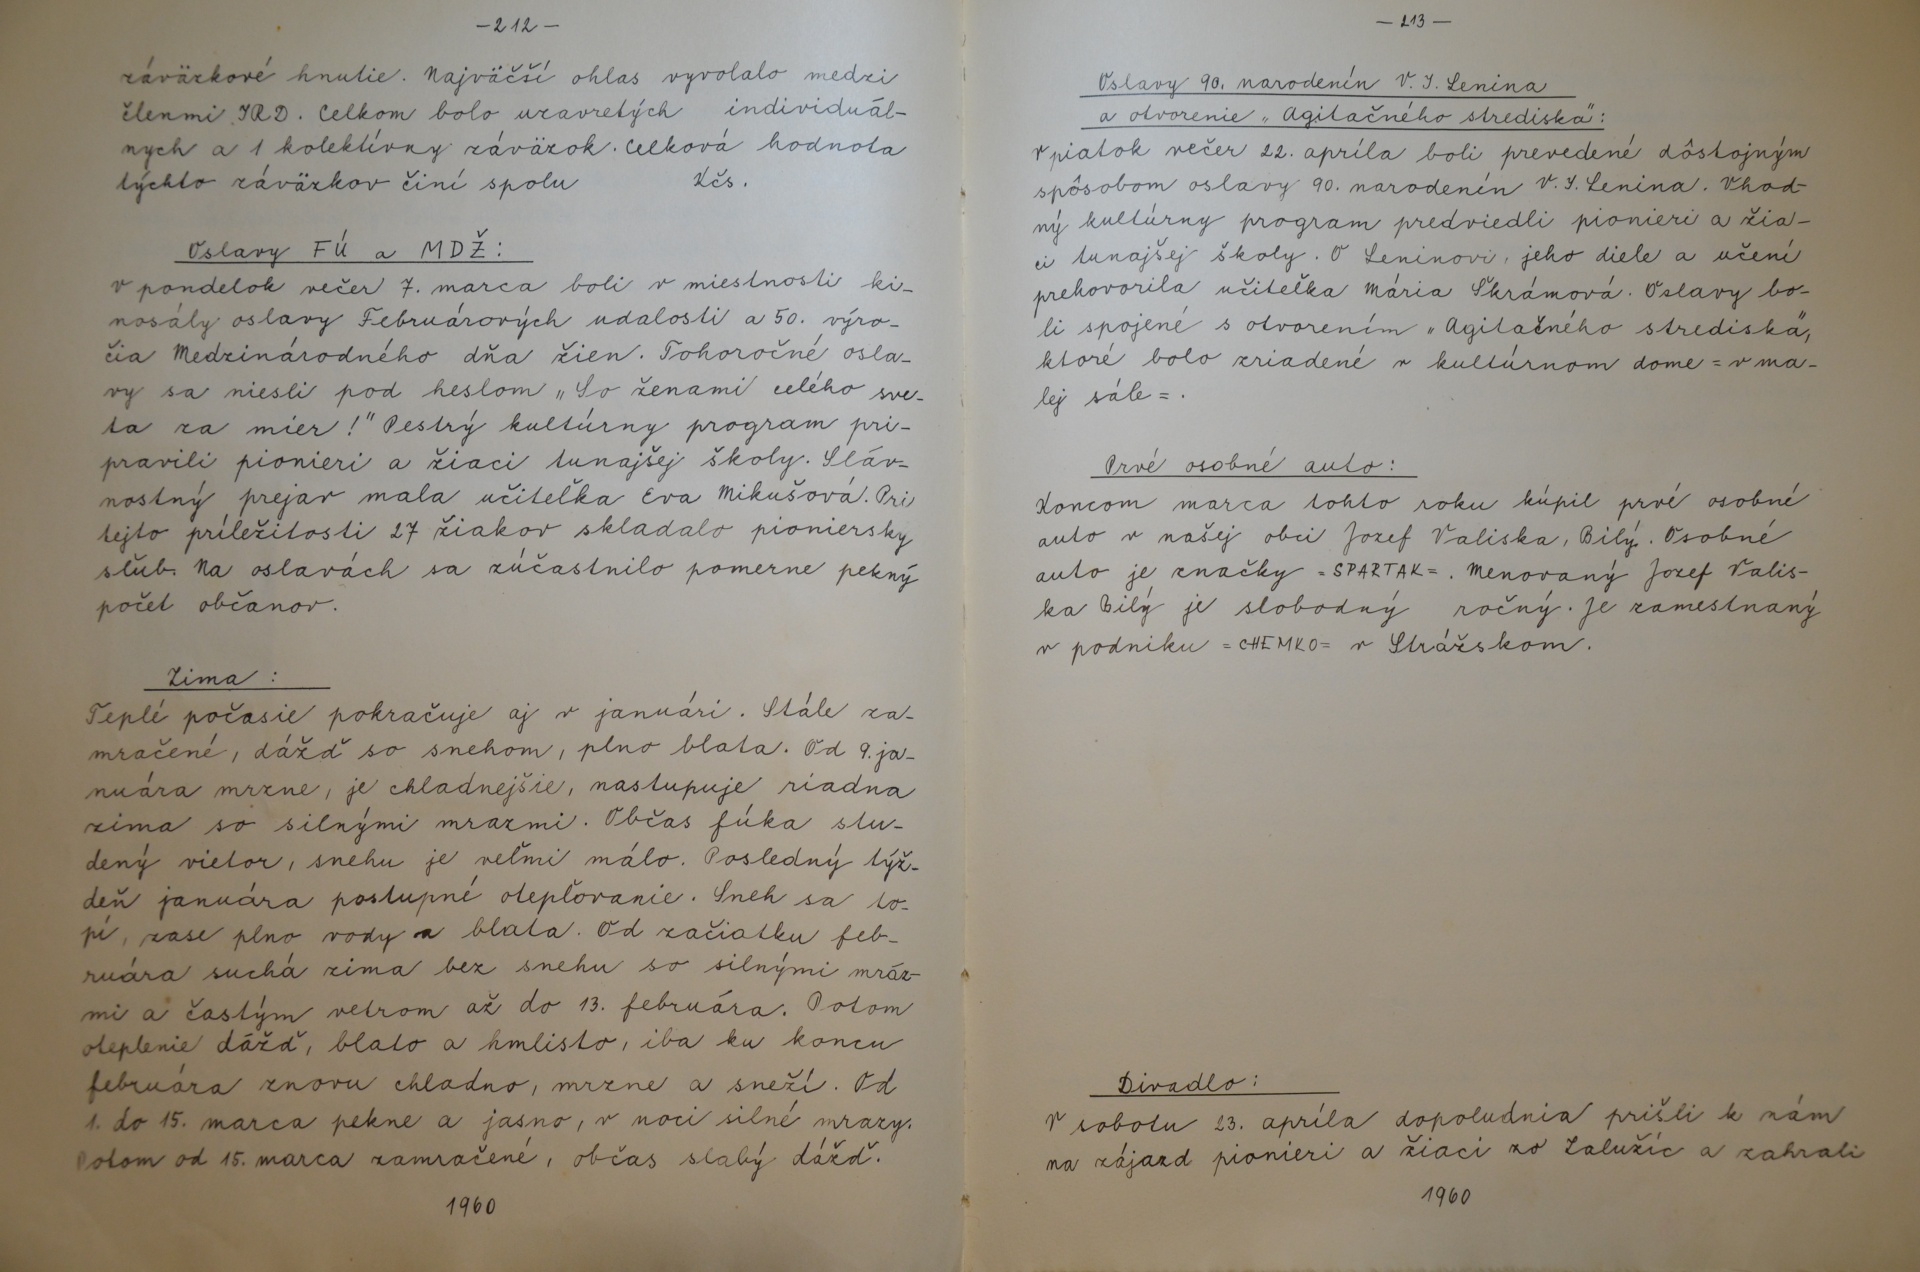 -212-
záväzkové hnutie. Najväčší ohlas vyvolalo medzi
členmi JRD. Celkom bolo uzavretých individuál-
nych a 1 kolektívny záväzok. Celková hodnota
týchto záväzkov činí spolu Kčs.
Oslavy FÚ a MDŽ:
V pondelok večer 7. marca boli v miestnosti ki-
nosály oslavy Februárových udalosti a 50. výro-
čia Medzinárodného dňa žien. Tohoročné osla-
vy sa niesli pod heslom „So ženami celého sve-
ta za mier!" Pestrý kultúrny program pri-
pravili pionieri a žiaci tunajšej školy. Sláv-
nostný prejav mala učiteľka Eva Mikušová. Pri
tejto príležitosti 27 žiakov skladalo pioniersky
sľub. Na oslavách sa zúčastnilo pomerne pekný
počet občanov.
Zima :
Teplé počasie pokračuje aj v januári. Stále za-
mračené, dážď so snehom, plno blata. Od 9. ja-
nuára mrzne, je chladnejšie, nastupuje riadna
zima so silnými mrazmi. Občas fúka stu-
dený vietor, snehu je veľmi málo. Posledný týž-
deň januára postupné otepľovanie. Sneh sa to-
pí, zase plno vody a blata. Od začiatku feb-
ruára suchá zima bez snehu so silnými mráz-
mi a častým vetrom až do 13. februára. Potom
oteplenie dážď, blato a hmlisto, iba ku koncu
februára znovu chladno, mrzne a sneží. Od
1. do 15. marca pekne a jasno, v noci silné mrazy.
Potom od 15. marca zamračené, občas slabý dážď.
1960
-213-
Oslavy 90. narodenín V. I. Lenina
a otvorenie „Agitačného strediska":
V piatok večer 22. apríla boli prevedené dôstojným
spôsobom oslavy 90. narodenín V. I. Lenina. Vhod-
ný kultúrny program predviedli pionieri a žia-
ci tunajšej školy. O Leninovi, jeho diele a učení
prehovorila učiteľka Mária Škrámová. Oslavy bo-
li spojené s otvorením „Agitačného strediska",
ktoré bolo zriadené v kultúrnom dome = v ma-
lej sále = .
Prvé osobné auto:
Koncom marca tohto roku kúpil prvé osobné
auto v našej obci Jozef Valiska, Bilý. Osobné
auto je značky =SPARTAK=. Menovaný Jozef Valis-
ka Bilý je slobodný ročný. Je zamestnaný
v podniku =CHEMKO= v Strážskom.
Divadlo:
V sobotu 23. apríla dopoludnia prišli k nám
na zájazd pionieri a žiaci zo Zalužíc a zahrali
1960